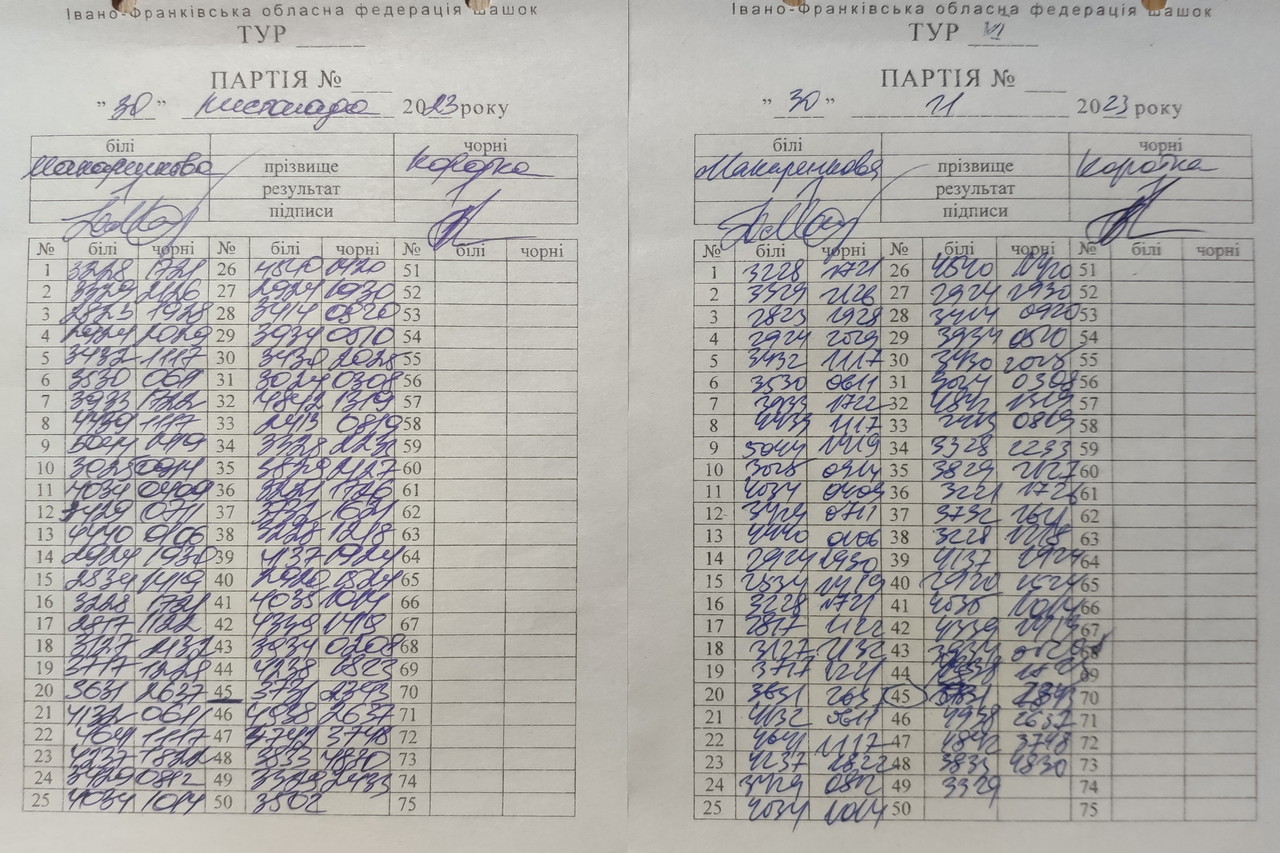 Івано-Франківська обласна федерація шашок
ТУР
ПАРТІЯ №
" 30 " листопада 2023 року
білі чорні
Макаренкова прізвище Коротка
1 результат 1
підписи
№ білі чорні № білі чорні № білі чорні
1 3228 1721 26 4540 1420 51
2 3329 2126 27 2924 1930 52
3 2823 1928 28 3414 0920 53
4 2924 2029 29 3934 0510 54
5 3432 1117 30 3430 2025 55
6 3530 0611 31 3024 0308 56
7 3933 1722 32 4842 1319 57
8 4439 1117 33 2413 0819 58
9 5044 1419 34 3328 2233 59
10 3025 0914 35 3829 2127 60
11 4034 0409 36 3221 1726 61
12 3429 0711 37 3732 1621 62
13 4440 0106 38 3228 1218 63
14 2924 1930 39 4137 1924 64
15 2834 1419 40 2920 1524 65
16 3228 1721 41 4035 1014 66
17 2817 1122 42 4339 1419 67
18 3127 2132 43 3934 0208 68
19 3717 1221 44 69
20 3631 2637 45 3731 70
21 4132 0611 46 4938 2637 71
22 4641 1117 47 3748 72
23 4237 1822 48 3833 4830 73
24 3429 0812 49 3329 2433 74
25 4034 1014 50 3502 75
Івано-Франківська обласна федерація шашок
ТУР VI
ПАРТІЯ №
" 30 " 11 2023 року
білі чорні
Макаренкова прізвище Коротка
1 результат 1
підписи
№ білі чорні № білі чорні № білі чорні
1 3228 1721 26 4540 1420 51
2 3329 2126 27 2924 1930 52
3 2823 1928 28 3414 0920 53
4 2924 2029 29 3934 0510 54
5 3432 1117 30 3430 2025 55
6 3530 0611 31 3024 0308 56
7 3933 1722 32 4842 1319 57
8 4439 1117 33 2413 0819 58
9 5044 1419 34 3328 2233 59
10 3025 0914 35 3829 2127 60
11 4034 0409 36 3221 1726 61
12 3429 0711 37 3732 1621 62
13 4440 0106 38 3228 1218 63
14 2924 1930 39 4137 1924 64
15 2834 1419 40 2920 1524 65
16 3228 1721 41 4035 1014 66
17 2817 1122 42 4339 1419 67
18 3127 2132 43 3934 68
19 3717 1221 44 69
20 3631 2637 45 70
21 4132 0611 46 4938 2637 71
22 4641 1117 47 4842 3748 72
23 4237 1822 48 3833 4830 73
24 3429 0812 49 3329 74
25 4034 1014 50 75